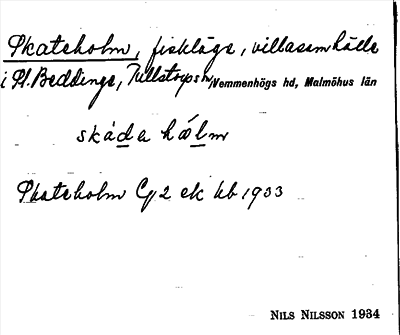 Skateholm, fiskläge, villasamhälle
i St. Beddinge, Tullstorps sn, Vemmenhögs hd, Malmöhus län
skáda hólm
Skateholm Cg 2 ek kb 1933
NILS NILSSON 1934